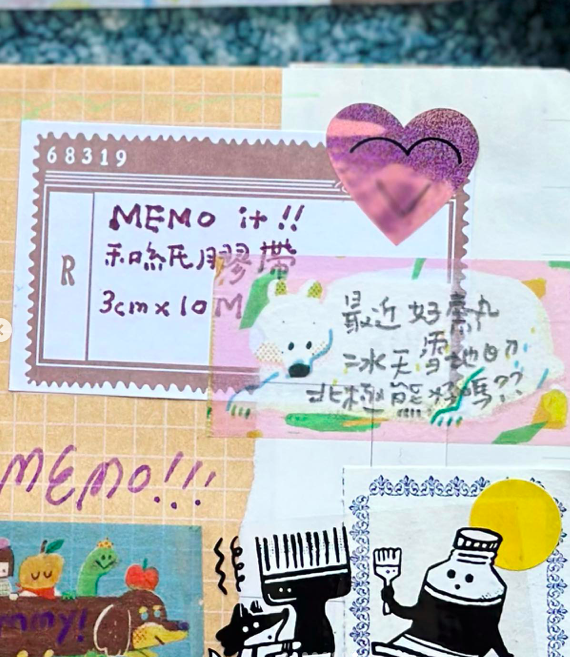 68319
R
MEMO it!!
和紙膠帶
3cm x 10M
最近好熱
冰天雪地的
北極熊好嗎??
MEMO!!!
mmy!